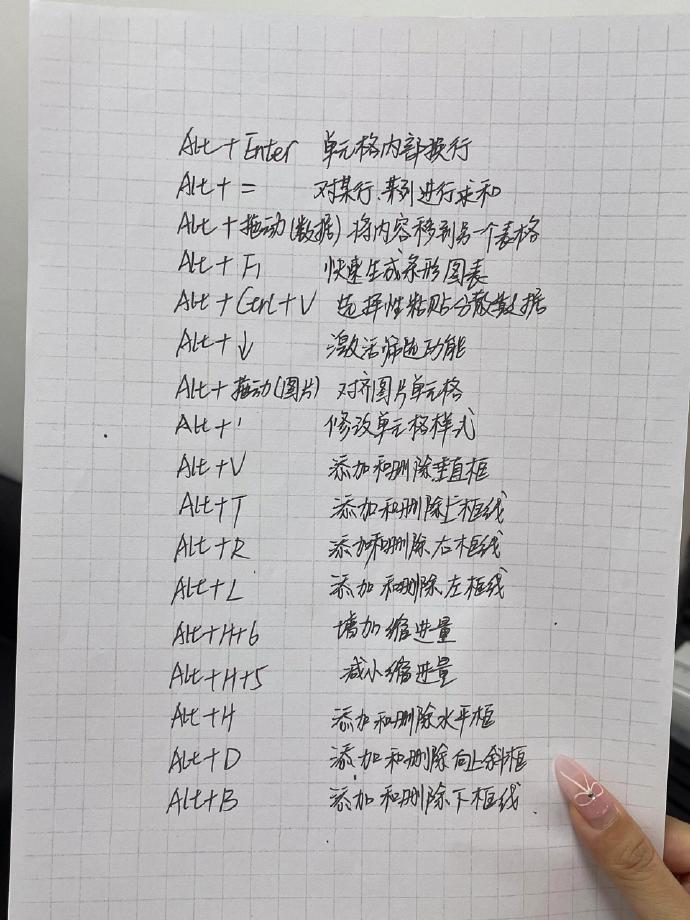 Alt+Enter 单元格内部换行
Alt+= 对某行、某列进行求和
Alt+拖动(数据) 将内容移到另一个表格
Alt+F1 快速生成条形图表
Alt+Ctrl+V 选择性粘贴分散数据
Alt+↓ 激活筛选功能
Alt+拖动(图片) 对齐图片单元格
Alt+' 修改单元格样式
Alt+V 添加和删除垂直框
Alt+T 添加和删除上框线
Alt+R 添加和删除右框线
Alt+L 添加和删除左框线
Alt+H+6 增加缩进量
Alt+H+5 减小缩进量
Alt+H 添加和删除水平框
Alt+D 添加和删除向上斜框
Alt+B 添加和删除下框线